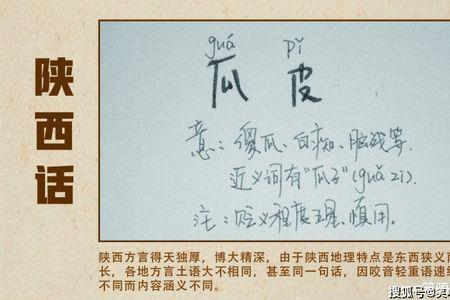 陕西话
guá pí
瓜 皮
意:傻瓜、白痴、脑残等.
近义词有“瓜子”(guá zi).
注:贬义程度五星、慎用。
陕西方言得天独厚,博大精深,由于陕西地理特点是东西狭义
长,各地方言土语大不相同,甚至同一句话,因咬音轻重语速
不同而内容涵义不同
搜狐号@笑